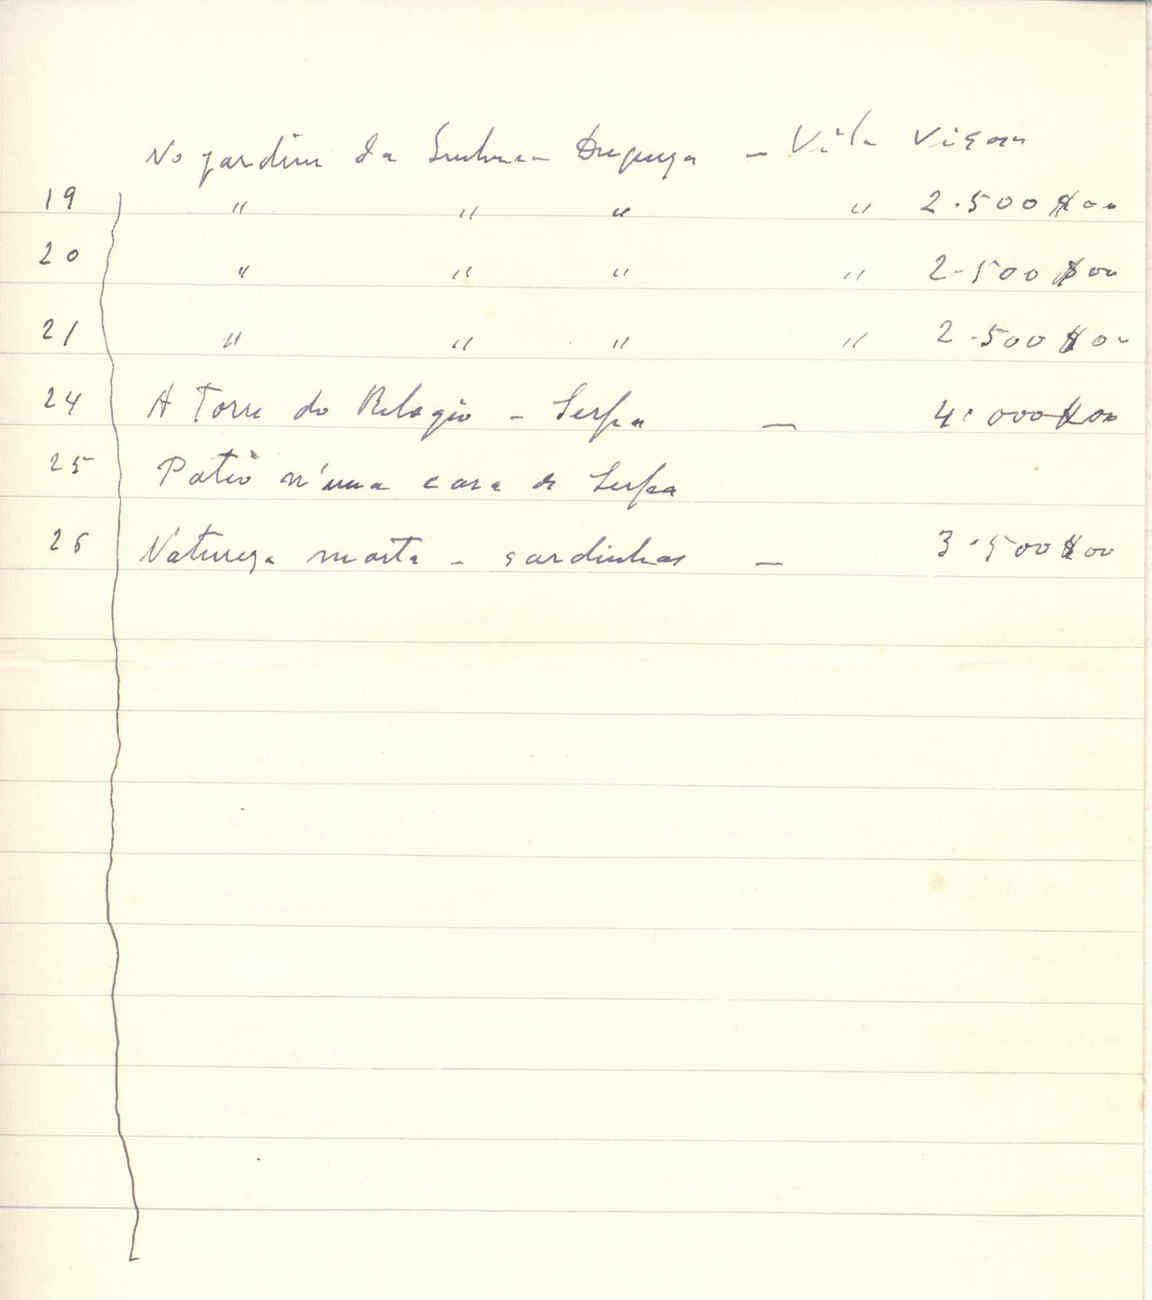 No jardim da Senhora Duqueza - Vila Viçosa
19 " " " " 2.500$00
20 " " " " 2.500$00
21 " " " " 2.500$00
24 A Torre do Relogio - Serpa - 4.000$00
25 Patio n'uma casa de Serpa
26 Natureza morta - sardinhas - 3.500$00